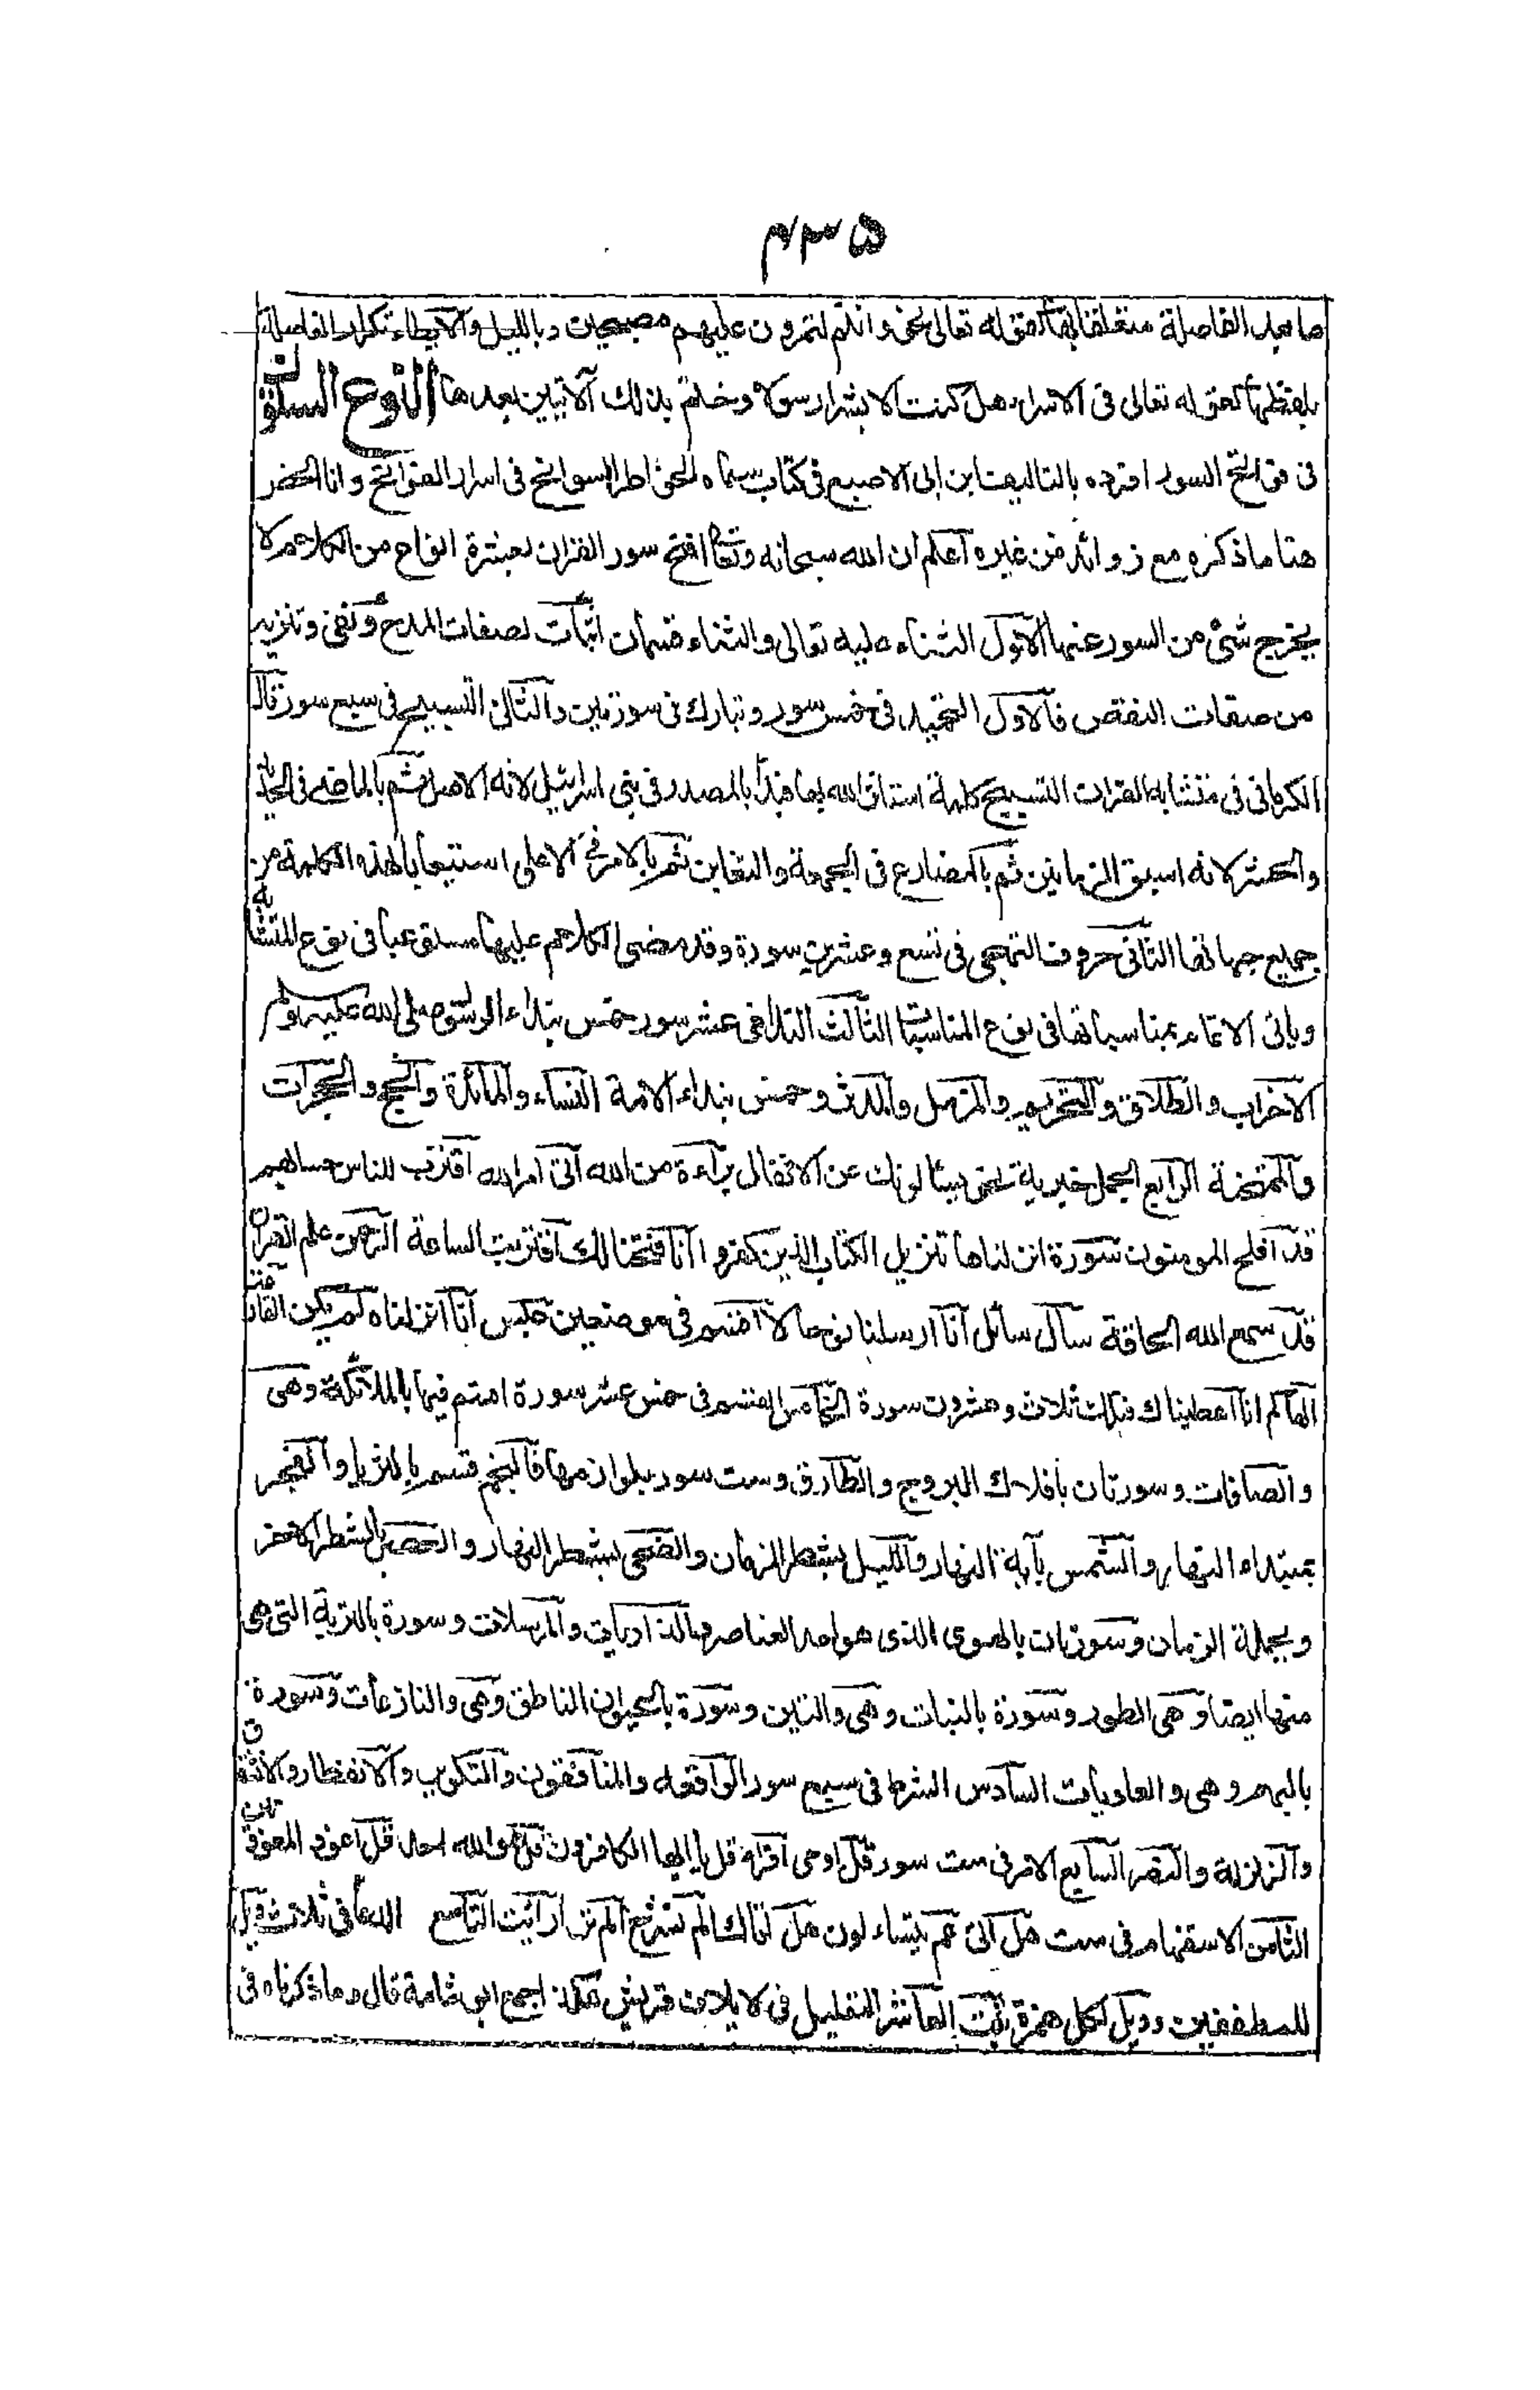 ۴۳۵
ما بعد الفاصلة متعلقا بها كقوله تعالى نحو وانكم لتمرون عليهم مصبحين وبالليل والايطاء تكرار الفاصلة
بلفظها كقوله تعالى فى الاسراء هل كنت الا بشرا رسولا وختم بذلك الآيتين بعدها النوع الستون
فى فواتح السور افرده بالتاليف ابن ابى الاصبع فى كتاب سماه الخواطر السوانح فى اسرار الفواتح وانا الخص
هنا ما ذكره مع زوائد من غيره اعلم ان الله سبحانه وتعالى افتتح سور القران بعشرة انواع من الكلام لا
يخرج شئ من السور عنها الاول الثناء عليه تعالى والثناء قسمان اثبات لصفات المدح ونفى وتنزيه
من صفات النقص فالاول التحميد فى خمس سور وتبارك فى سورتين والثانى التسبيح فى سبع سور قال
الكرمانى فى متشابه القران التسبيح كلمة استاثر الله بها فبدأ بالمصدر فى بنى اسرائيل لانه الاصل ثم بالماضى فى الحديد
والحشر لانه اسبق الزمانين ثم بالمضارع فى الجمعة والتغابن ثم بالامر فى الاعلى استيعابا لهذه الكلمة من
جميع جهاتها الثانى حروف التهجى فى تسع وعشرين سورة وقد مضى الكلام عليها مستوعبا فى نوع المتشابه
وياتى الالمام بمناسباتها فى نوع المناسبات الثالث النداء فى عشر سور خمس بنداء الرسول صلى الله عليه وسلم
الاحزاب والطلاق والتحريم والمزمل والمدثر وخمس بنداء الامة النساء والمائدة والحج والحجرات
والممتحنة الرابع الجمل خبرية نحو يسئلونك عن الانفال براءة من الله اتى امر الله اقترب للناس حسابهم
قد افلح المومنون سورة انزلناها تنزيل الكتاب الذين كفروا انا فتحنا لك اقتربت الساعة الرحمن علم القران
قد سمع الله الحاقة سأل سائل انا ارسلنا نوحا لا اقسم فى موضعين عبس انا انزلناه لم يكن القارعة
الهاكم انا اعطيناك فتلك ثلاث وعشرون سورة الخامس القسم فى خمس عشر سورة اقسم فيها بالملائكة وهى
والصافات وسورتان بافلاك البروج والطارق وست سور بلوازمها فالنجم قسم بالثريا والفجر
بمبتداء النهار والشمس بآية النهار والليل بشطر الزمان والضحى بشطر النهار والعصر بالشطر الاخر
وبجملة الزمان وسورتان بالهوى الذى هو احد العناصر والذاريات والمرسلات وسورة بالتربة التى هى
منها ايضا وهى الطور وسورة بالنبات وهى والتين وسورة بالحيوان الناطق وهى والنازعات وسورة
بالبهم وهى والعاديات السادس الشرط فى سبع سور الواقعه والمنافقون والتكوير والانفطار والانشقاق
والزلزلة والنصر السابع الامر فى ست سور قل اوحى اقرا قل يا ايها الكافرون قل هو الله احد قل اعوذ المعوذتين
الثامن الاستفهام فى ست هل اتى عم يتساءلون هل اتاك الم نشرح الم تر ارأيت التاسع الدعاء فى ثلاث ويل
للمطففين وويل لكل همزة تبت العاشر التعليل فى لايلاف قريش هكذا جمع ابو شامة قال وما ذكرناه فى